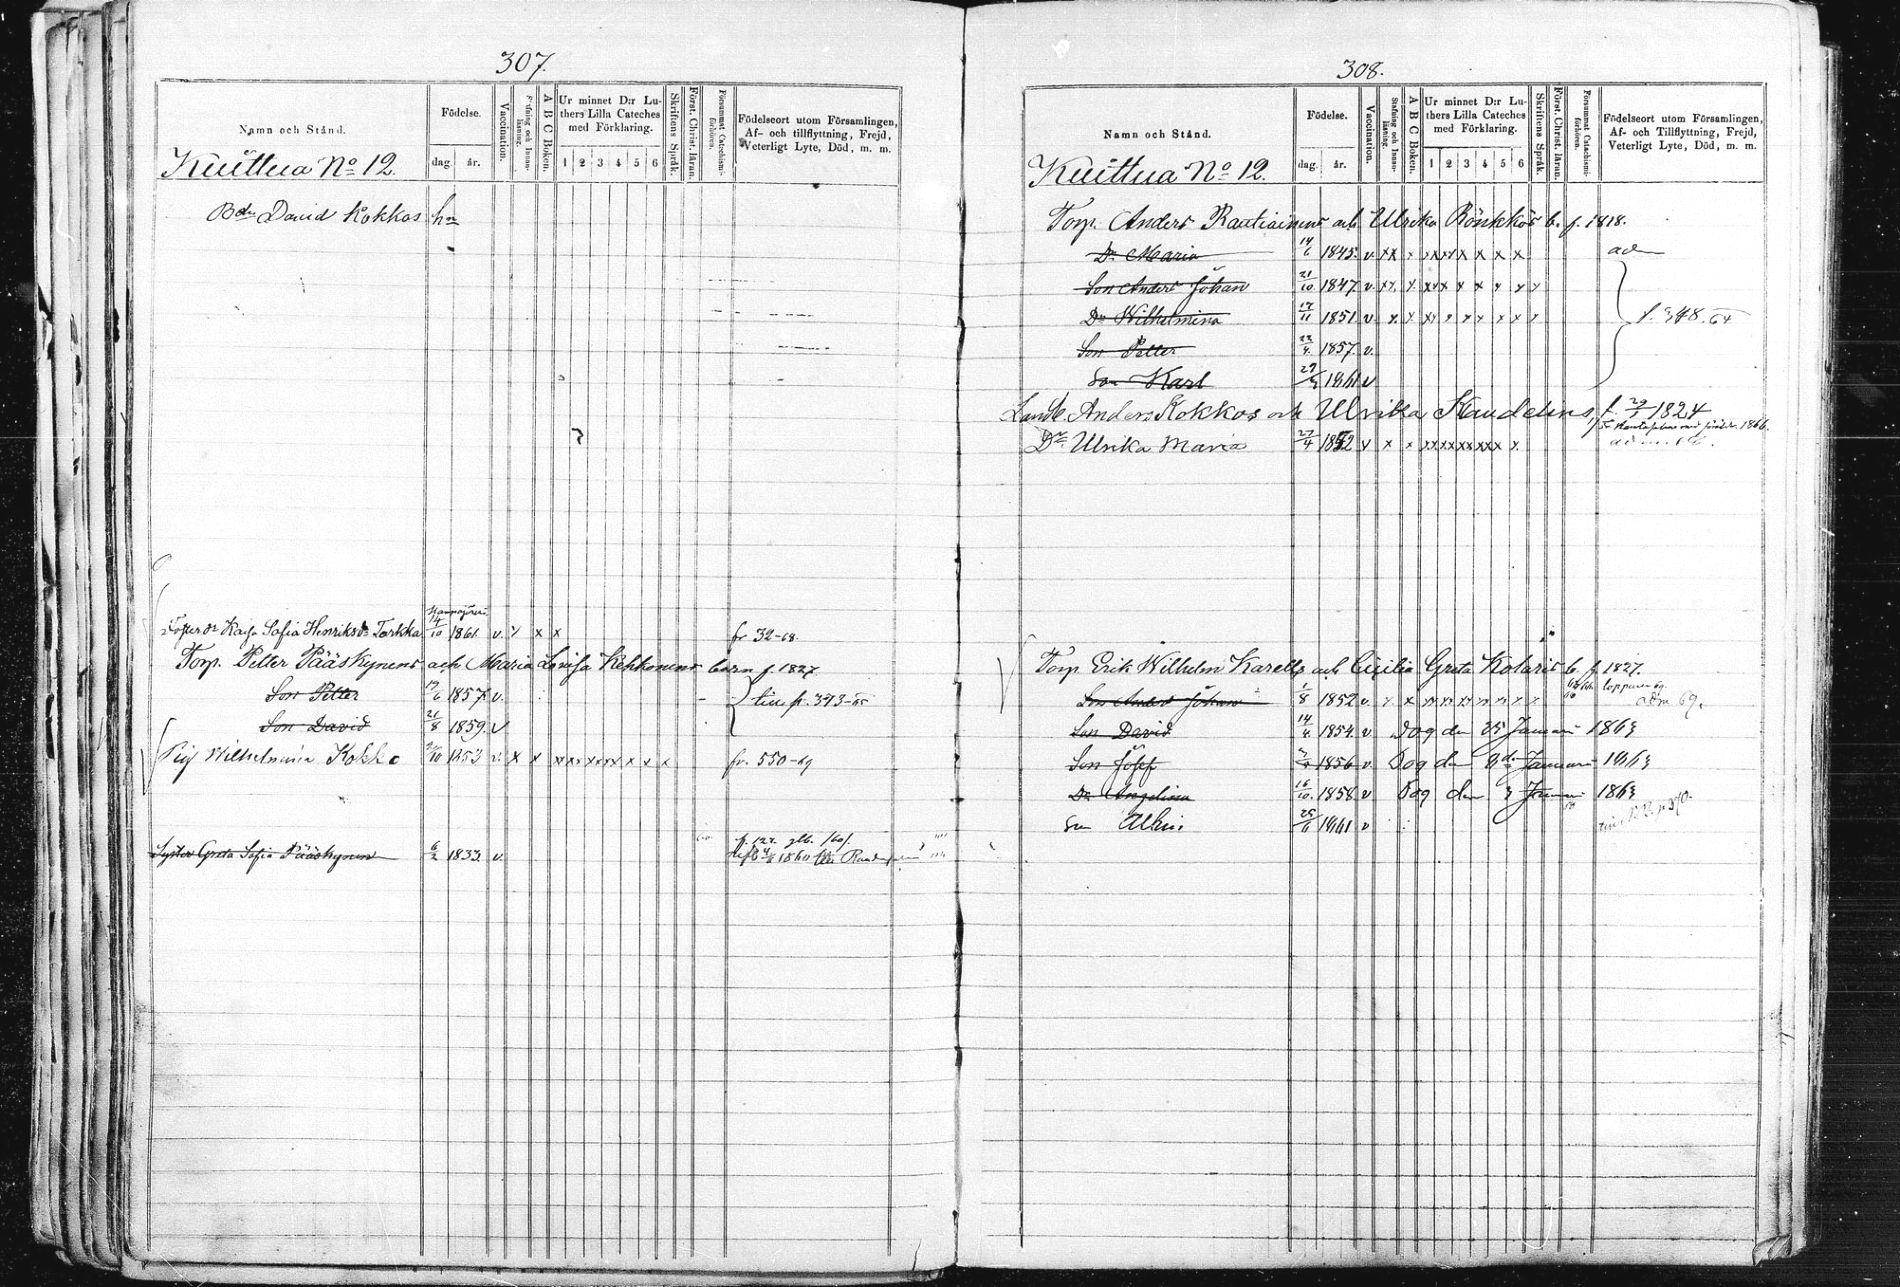 307.
Namn och Stånd.
Födelse.
dag. år.
Vaccination.
Stafning och Innan-läsning.
A B C Boken.
Ur minnet D:r Lu-
thers Lilla Cateches
med Förklaring.
1 2 3 4 5 6
Skriftens Språk.
Först. Christ. läran.
Försummat Catechismi-förhören.
Födelseort utom Församlingen,
Af- och tillflyttning, Frejd,
Veterligt Lyte, Död, m. m.
Kuittua No 12.
Bdn David Kokkos hn
Foster dr Kajsa Sofia Henriksdr Torkka 14/10 1861. v. x x x fr 32-68.
Torp. Petter Pääskynens och Maria Lovisa Kehkonens barn f. 1827
Son Petter 19/6 1857. v.
Son David 21/8 1859. v
till p. 393-65
Pig Wilhelmina Kokko /10 1853 v. x x xxx xxxx x x x fr. 550-69
Syster Greta Sofia Pääskynen 6/2 1833. v.
308.
Namn och Stånd.
Födelse.
dag. år.
Vaccination.
Stafning och Innan-läsning.
A B C Boken.
Ur minnet D:r Lu-
thers Lilla Cateches
med Förklaring.
1 2 3 4 5 6
Skriftens Språk.
Först. Christ. läran.
Försummat Catechismi-förhören.
Födelseort utom Församlingen,
Af- och Tillflyttning, Frejd,
Veterligt Lyte, Död, m. m.
Kuittua No 12.
Torp. Anders Rautiainens och Ulrika Rönkkös b. f. 1818.
Dr Maria 14/6 1845. v xx x xxxx x x x x adm
Son Anders Johan 21/10 1847 v. xx x xxx x x x x x
Dr Wilhelmina 17/11 1851 v. x x xx x x x x x x
Son Petter 22/4 1857. v.
Son Karl 1861 v
Anders Kokkos och Ulrika Kaudelins f. 29/5 1824
Dr Ulrika Maria 27/4 1852 v x x xxxxxxxx x
Torp Erik Wilhelm Karells och Cicilia Greta Kolaris b. f 1827.
Son Anders Johan 1/8 1852 v. x x xx xx xx x x x adm 69.
Son David 14/4 1854. v Dog den 25 Januari 1863
Son Josef 1856 v Dog den 9de Januari 1863
Dr Angelina 16/10. 1858. v Dog den 3 Januari 1863
Son Albin 25/6 1861 v